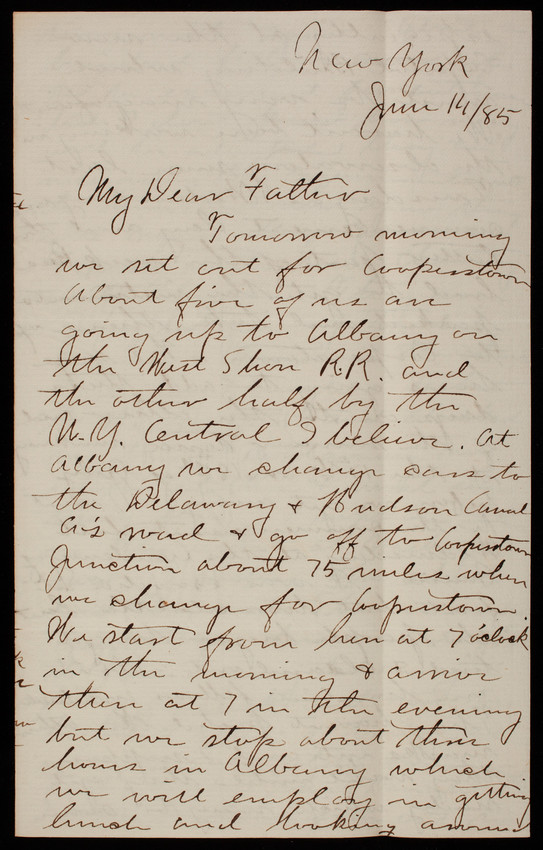 New York
June 14/85
My Dear Father
Tomorrow morning
we set out for Cooperstown
About five of us are
going up to Albany on
the West Shore R.R. and
the other half by the
N.Y. Central I believe. At
Albany we change cars to
the Delaware & Hudson Canal
Co's road & go off to Cooperstown
Junction about 75 miles when
we change for Cooperstown.
We start from here at 7 o'clock
in the morning & arrive
there at 7 in the evening
but we stop about three
hours in Albany which
we will employ in getting
lunch and looking around